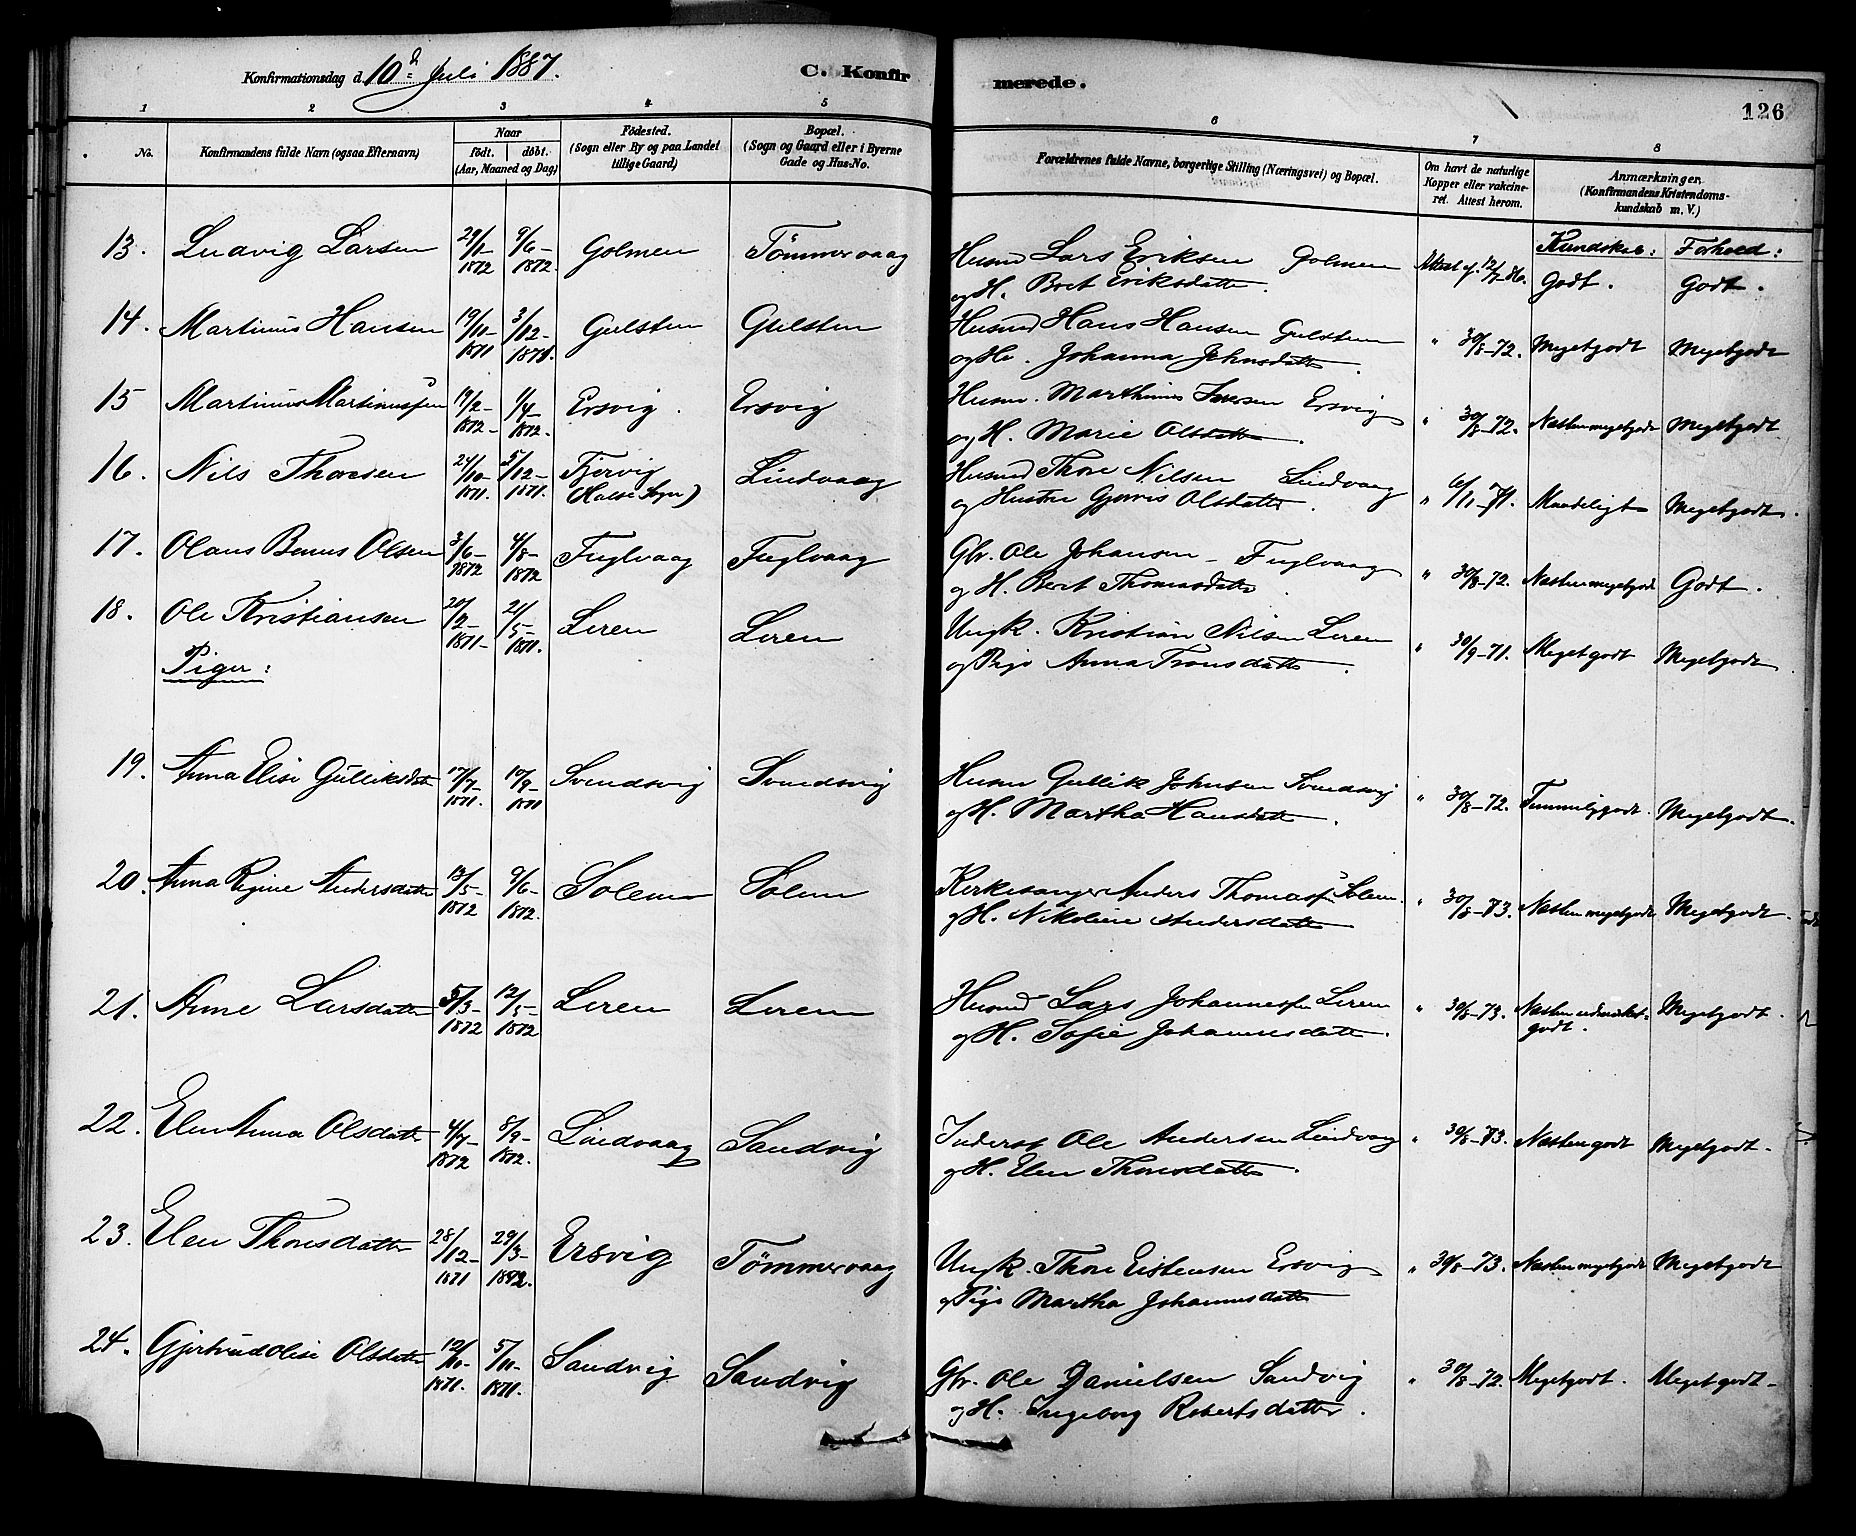 Konfirmationsdag d. 10d Juli 1887. C. Konfirmerede. 126
1 2 3 4 5 6 7 8
No. Konfirmandens fulde Navn (ogsaa Efternavn) Naar født. døbt. (Aar, Maaned og Dag) Fødested. (Sogn eller By og paa Landet tillige Gaard) Bopæl. (Sogn og Gaard eller i Byerne Gade og Hus-No. Forældrenes fulde Navne, borgerlige Stilling (Næringsvei) og Bopæl. Om havt de naturlige Kopper eller vakcineret. Attest herom. Anmærkninger. (Konfirmandens Kristendomskundskab m. V.)
Kundskab: Forhold:
13. Ludvig Larsen 29/1-1872 9/6-1872. Golmen Tömmervaag Husmd Lars Eriksen Golmen Attest af 12/7-86. Godt. Godt.
og H. Bret Eriksdatter.
14. Martinus Hansen 19/10-1871 3/12-1871. Gulsten Gulsten Husmd Hans Hansen Gulsten " 30/8-72. Megetgodt Megetgodt
og H. Johanna Johnsdatter.
15 Martinus Martinussen 19/2-1872- 1/4-1872. Ersvig. Ersvig Husm. Marthinus Iversen Ersvig " 30/8-72. Næstenmegetgodt Megetgodt
og H. Marie Olsdatter.
16. Nils Thoresen 24/10-1871. 5/12-1871. Fjervig (Halse Sogn) Lindvaag Husmd Thore Nilsen Lindvaag " 6/11-71. Maadeligt Megetgodt.
og Hustru Olsdatter.
17. Olaus Bernus Olsen 3/6-1872 4/8-1872 Fuglvaag Fuglvaag Gbr. Ole Johansen - Fuglvaag " 30/8-72. Næstenmegetgodt Godt.
og H. Bert Thomasdatter.
18. Ole Kristiansen 20/2-1871- 21/5-1871. Leren Leren Ungk. Kristian Nilsen Leren " 30/9-71. Megetgodt Megetgodt
og Pige Anna Tronsdatter.
Piger:
19. Anna Elise Gulliksdatter 17/7-1871. 10/9-1871 Svendsvig Svendsvig Husm Gullik Johnsen Svendsvig " 30/8-72. Temmeliggodt. Megetgodt.
og H. Martha Hansdatter.
20. Anna Regine Andersdatter 13/5-1872 9/6-1872. Solem Solem Kirkesanger Anders Thomassen Solem. " 30/8-73. Næsten megetgodt Megetgodt.
og H. Nikoline Andersdatter
21. Anne Larsdatter 5/3-1872 12/5-1872 Leren Leren Husmd Lars Johannessen Leren " 30/8-73. Næsten udmærket-godt. Megetgodt.
og H. Sofie Johannesdatter.
22. Elen Anna Olsdatter 4/7-1872 8/9-1872. Lindvaag Sandvig Inderst Ole Andersen Lindvaag " 30/8-73. Næstengodt Megetgodt.
og H. Elen Thoresdatter.
23. Elen Thoresdatter 28/12-1871 29/3-1872. Ersvig Tömmervaag Ungk. Thore Eistensen Ersvig " 30/8-73. Næstenmegetgodt Megetgodt
og Pige Martha Johannesdatter
24. Gjertrud Olise Olsdatter 12/10-1871. 5/11-1871. Sandvig Sandvig Gbr. Ole Danielsen Sandvig " 30/8-72. Megetgodt. Megetgodt.
og H. Ingeborg Robertsdatter.